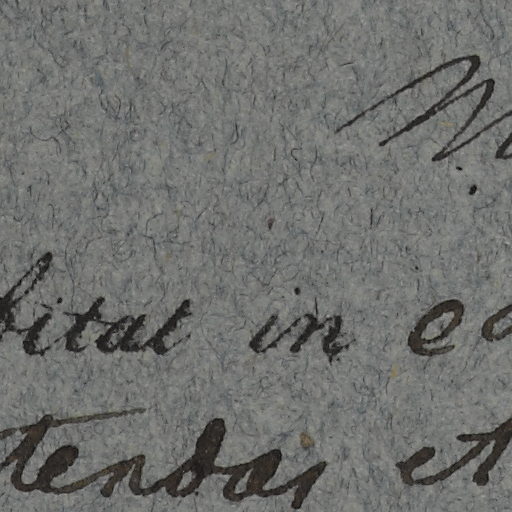 bitat in ea
tendas et